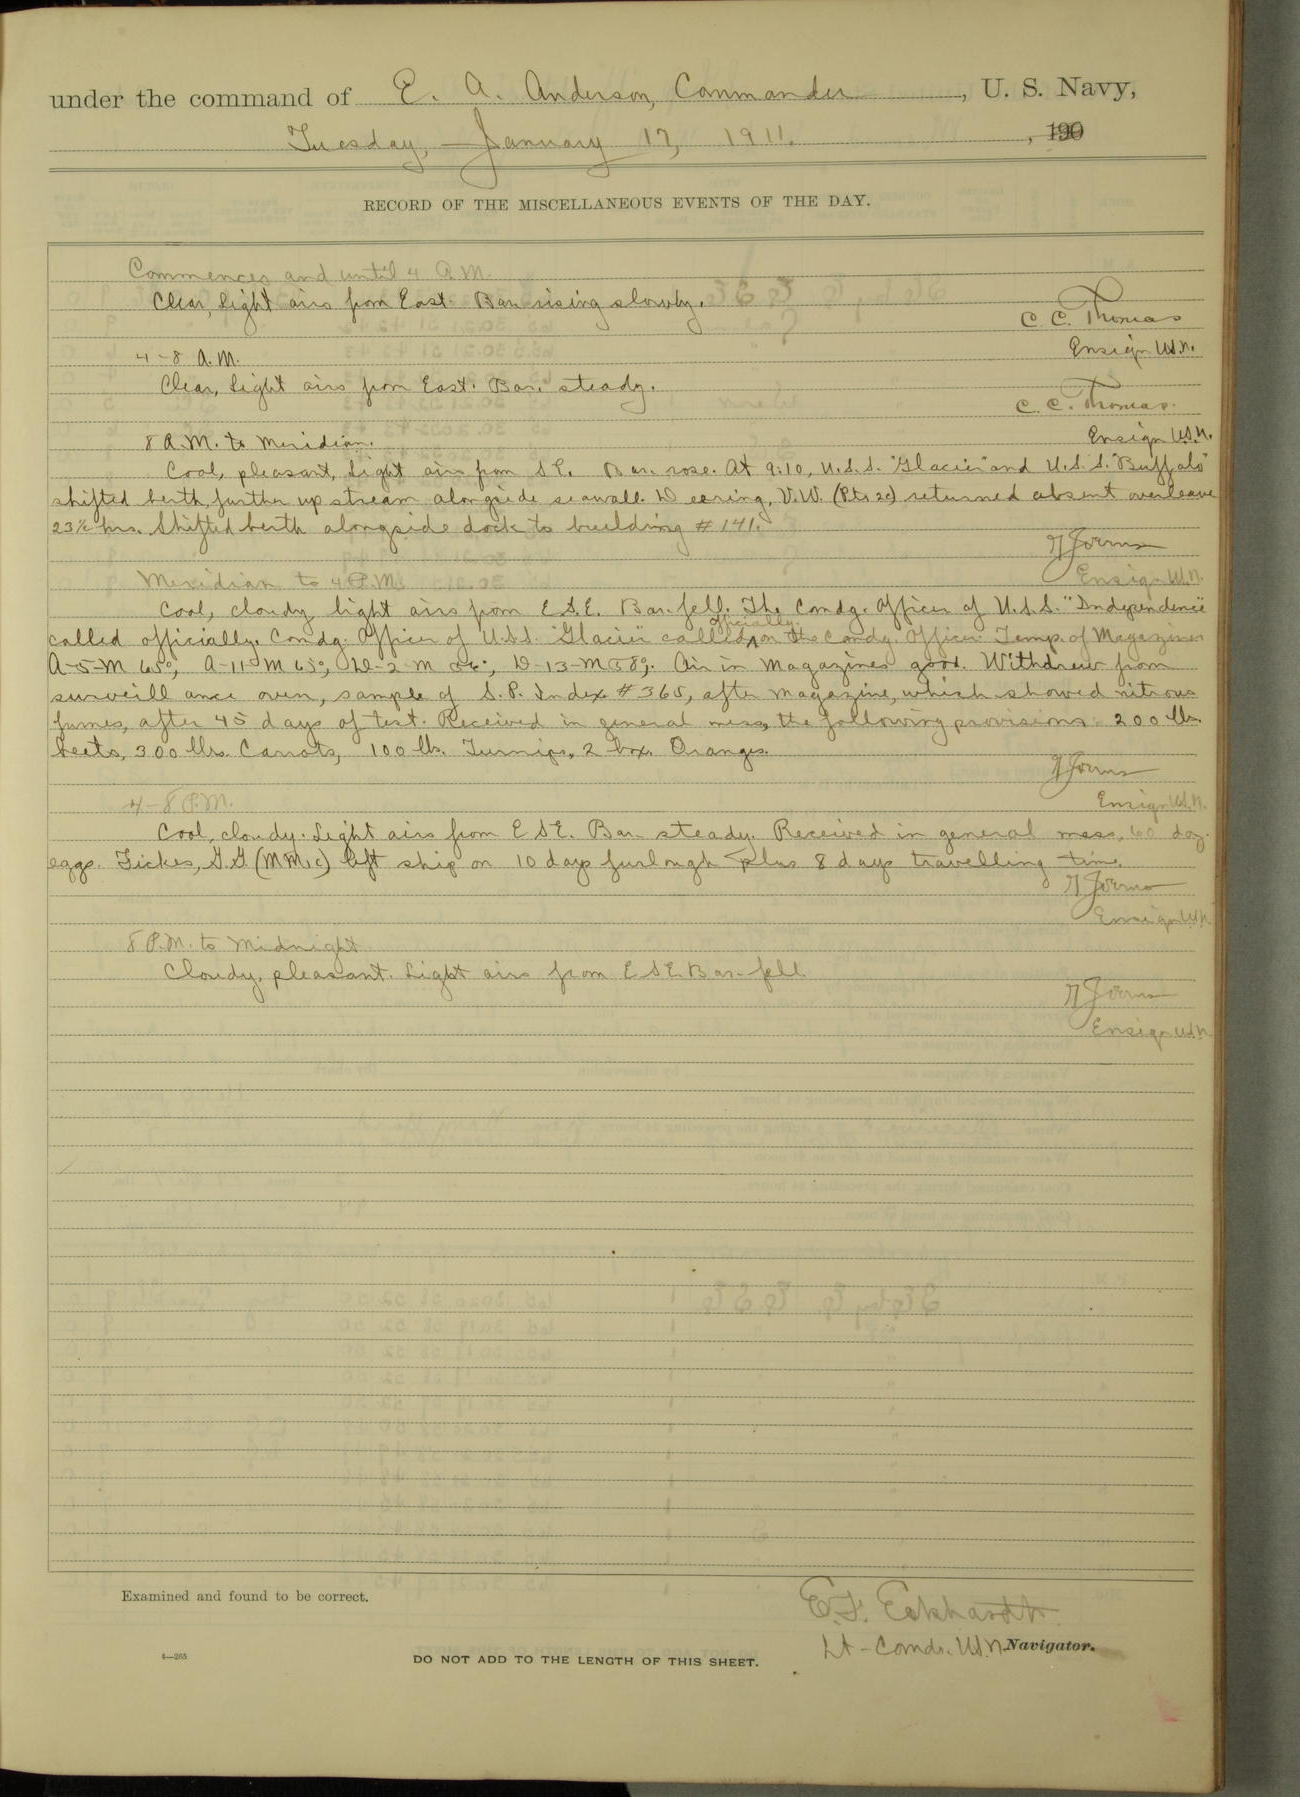 under the command of E. A. Anderson, Commander, U. S. Navy,
Tuesday, January 17, 1911. , 190
RECORD OF THE MISCELLANEOUS EVENTS OF THE DAY.
Commences and until 4 A.M.
Clear, light airs from East. Bar. rising slowly.
C. C. Thomas
Ensign U.S.N.
4-8 A.M.
Clear, light airs from East. Bar. steady.
C. C. Thomas.
Ensign U.S.N.
8 A.M. to Meridian.
Cool, pleasant, light airs from SE. Bar. rose. At 9:10, U.S.S. "Glacier" and U.S.S. "Buffalo"
shifted berth further up stream alongside seawall. Deering, V.W. (Ptr 2c) returned absent overleave
23½ hrs. Shifted berth alongside dock to building #141.
Ensign U.S.N.
Meridian to 4 P.M.
Cool, cloudy light airs from E.S.E. Bar. fell. The Comdg. Officer of U.S.S. "Independence"
called officially. Comdg. Officer of U.S.S. "Glacier" called officially on the Comdg. Officer. Temp. of Magazines
A-5-M 65°, A-11-M 65°, D-2-M 56°, D-13-M 58°. Air in Magazines good. Withdrew from
surveillance oven, sample of S.P. Index #365, after magazine, which showed nitrous
fumes, after 45 days of test. Received in general mess, the following provisions: 200 lbs.
beets, 300 lbs. Carrots, 100 lb. Turnips, 2 box. Oranges.
Ensign U.S.N.
4-8 P.M.
Cool, cloudy. Light airs from ESE. Bar. steady. Received in general mess, 60 doz.
eggs. Fickes, G.G. (MM1c) left ship on 10 days furlough plus 8 days travelling time.
Ensign U.S.N.
8 P.M. to Midnight
Cloudy, pleasant. Light airs from ESE. Bar. fell
Ensign U.S.N.
Examined and found to be correct.
E.F. Eckhardt
Lt-Comdr. U.S.N. Navigator.
4—265
DO NOT ADD TO THE LENGTH OF THIS SHEET.